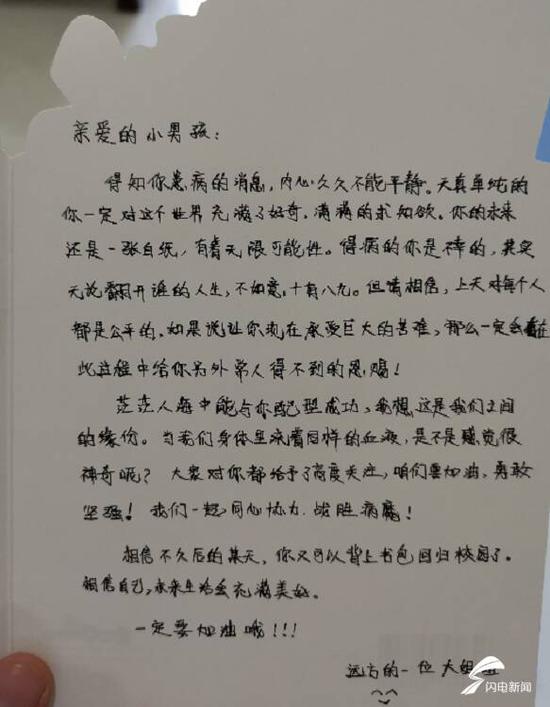 亲爱的小男孩：
得知你患病的消息，内心久久不能平静。天真单纯的
你一定对这个世界充满了好奇，满满的求知欲。你的未来
还是一张白纸，有着无限可能性。得病的你是棒的，其实
无论翻开谁的人生，不如意，十有八九。但请相信，上天对每个人
都是公平的，如果说让你现在承受巨大的苦难，那么一定会在
此过程中给你另外常人得不到的恩赐！
茫茫人海中能与你配型成功，我想这是我们之间
的缘份。当我们身体里流着同样的血液，是不是感觉很
神奇呢？大家对你都给予了高度关注，咱们要加油，勇敢
坚强！我们一起同心协力，战胜病魔！
相信不久后的某天，你又可以背上书包回归校园了。
相信自己，未来生活会充满美好。
一定要加油哦！！！
远方的一位大姐
闪电新闻